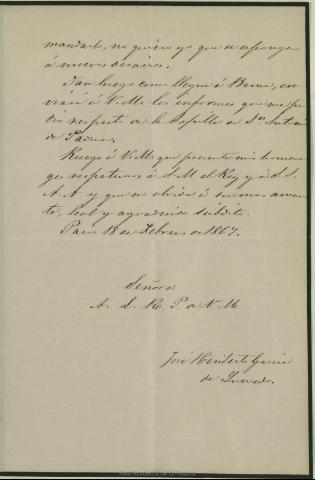 mandarlo, no quiero yo que se esponga
á nuevos desaires.
Tan luego como llegue á Roma, en
viaré á V. M. los informes que me pi
dió respecto de la Capilla de Sn. Antonio
de Padua.
Ruego á V. M. que presente mis homena
ges respetuosos á S. M. el Rey, y á S.
A. A. y que no olvide á su mas aman
te, leal y agradecido súbdito.
Paris 18 de Febrero de 1867.
Señora:
A. L. R. P. de V. M.
José Heriberto García
de Quevedo.